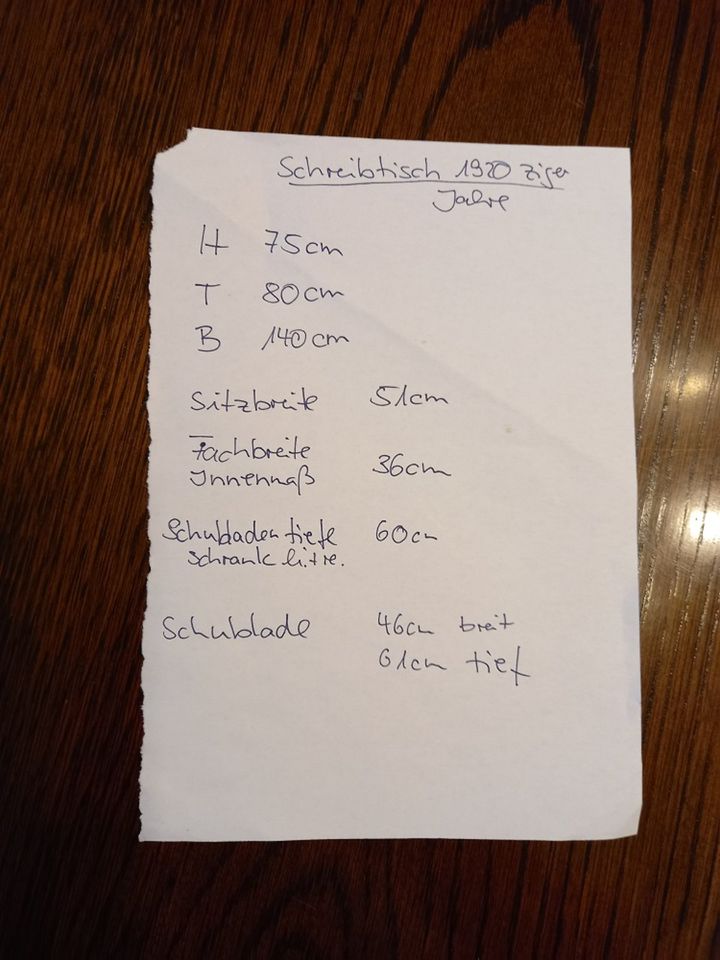 Schreibtisch 1920 ziger
Jahre
H 75cm
T 80cm
B 140cm
Sitzbreite 51cm
Fachbreite
Innenmaß 36cm
Schubladentiefe 60cm
Schrank li+re.
Schublade 46cm breit
61cm tief